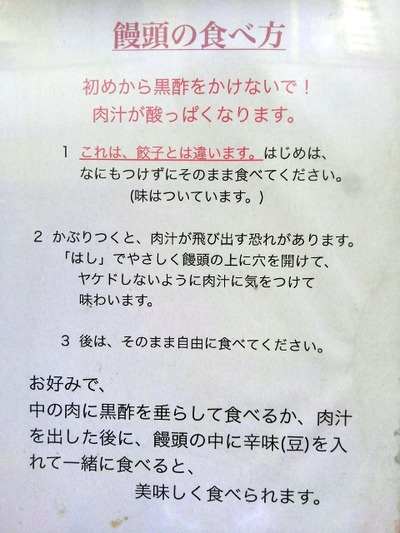 饅頭の食べ方
初めから黒酢をかけないで！
肉汁が酸っぱくなります。
1 これは、餃子とは違います。はじめは、
なにもつけずにそのまま食べてください。
(味はついています。)
2 かぶりつくと、肉汁が飛び出す恐れがあります。
「はし」でやさしく饅頭の上に穴を開けて、
ヤケドしないように肉汁に気をつけて
味わいます。
3 後は、そのまま自由に食べてください。
お好みで、
中の肉に黒酢を垂らして食べるか、肉汁
を出した後に、饅頭の中に辛味(豆)を入
れて一緒に食べると、
美味しく食べられます。